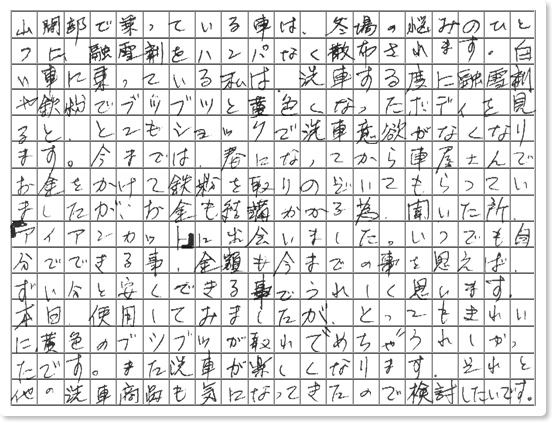 山間部で乗っている車は、冬場の悩みのひと
つに、融雪剤をハンパなく散布されます。白
い車に乗っている私は、洗車する度に融雪剤
や鉄粉でブツブツと黄色くなったボディを見
ると、とてもショックで洗車意欲がなくなり
ます。今までは、春になってから車屋さんで
お金をかけて鉄粉を取りのぞいてもらってい
ましたが、お金も結構かかる為、聞いた所、
「アイアンカット」に出会いました。いつでも自
分でできる事、金額も今までの事を思えば、
ずい分と安くできる事でうれしく思います。
本日、使用してみましたが、とってもきれい
に黄色のブツブツが取れてめちゃうれしかっ
たです。また洗車が楽しくなります。それと
他の洗車商品も気になってきたので検討したいです。